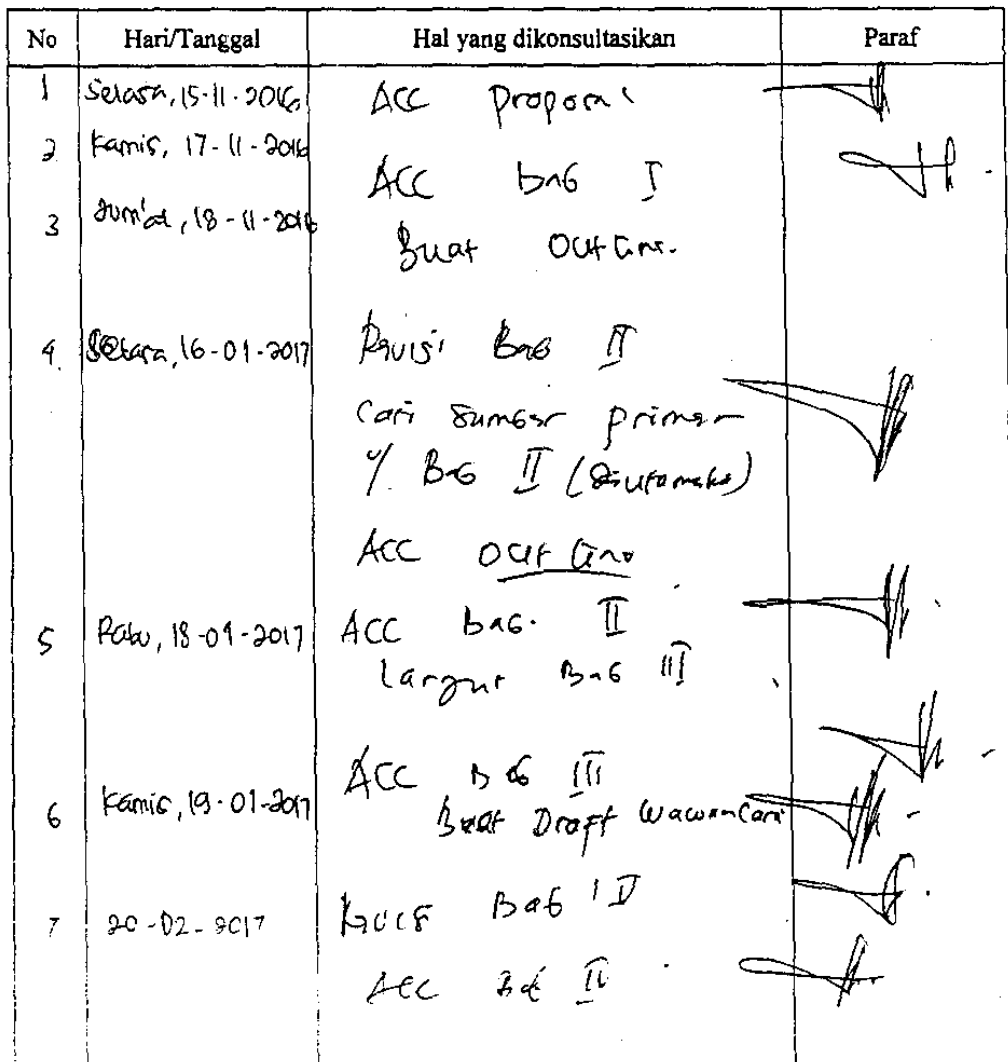 No Hari/Tanggal Hal yang dikonsultasikan Paraf
1 Selasa, 15-11-2016 ACC Proposal
2 Kamis, 17-11-2016 ACC bab I
3 Jum'at, 18-11-2016 Buat Outline.
4. Selasa, 16-01-2017 Revisi Bab II
Cari sumber primer
y/. Bab II (diutamakan)
ACC Outline
5 Rabu, 18-01-2017 ACC bab. II
Lanjut Bab III
ACC Bab III
6 Kamis, 19-01-2017 Buat Draft Wawancara
7 20-02-2017 Revisi Bab IV
ACC Bab IV